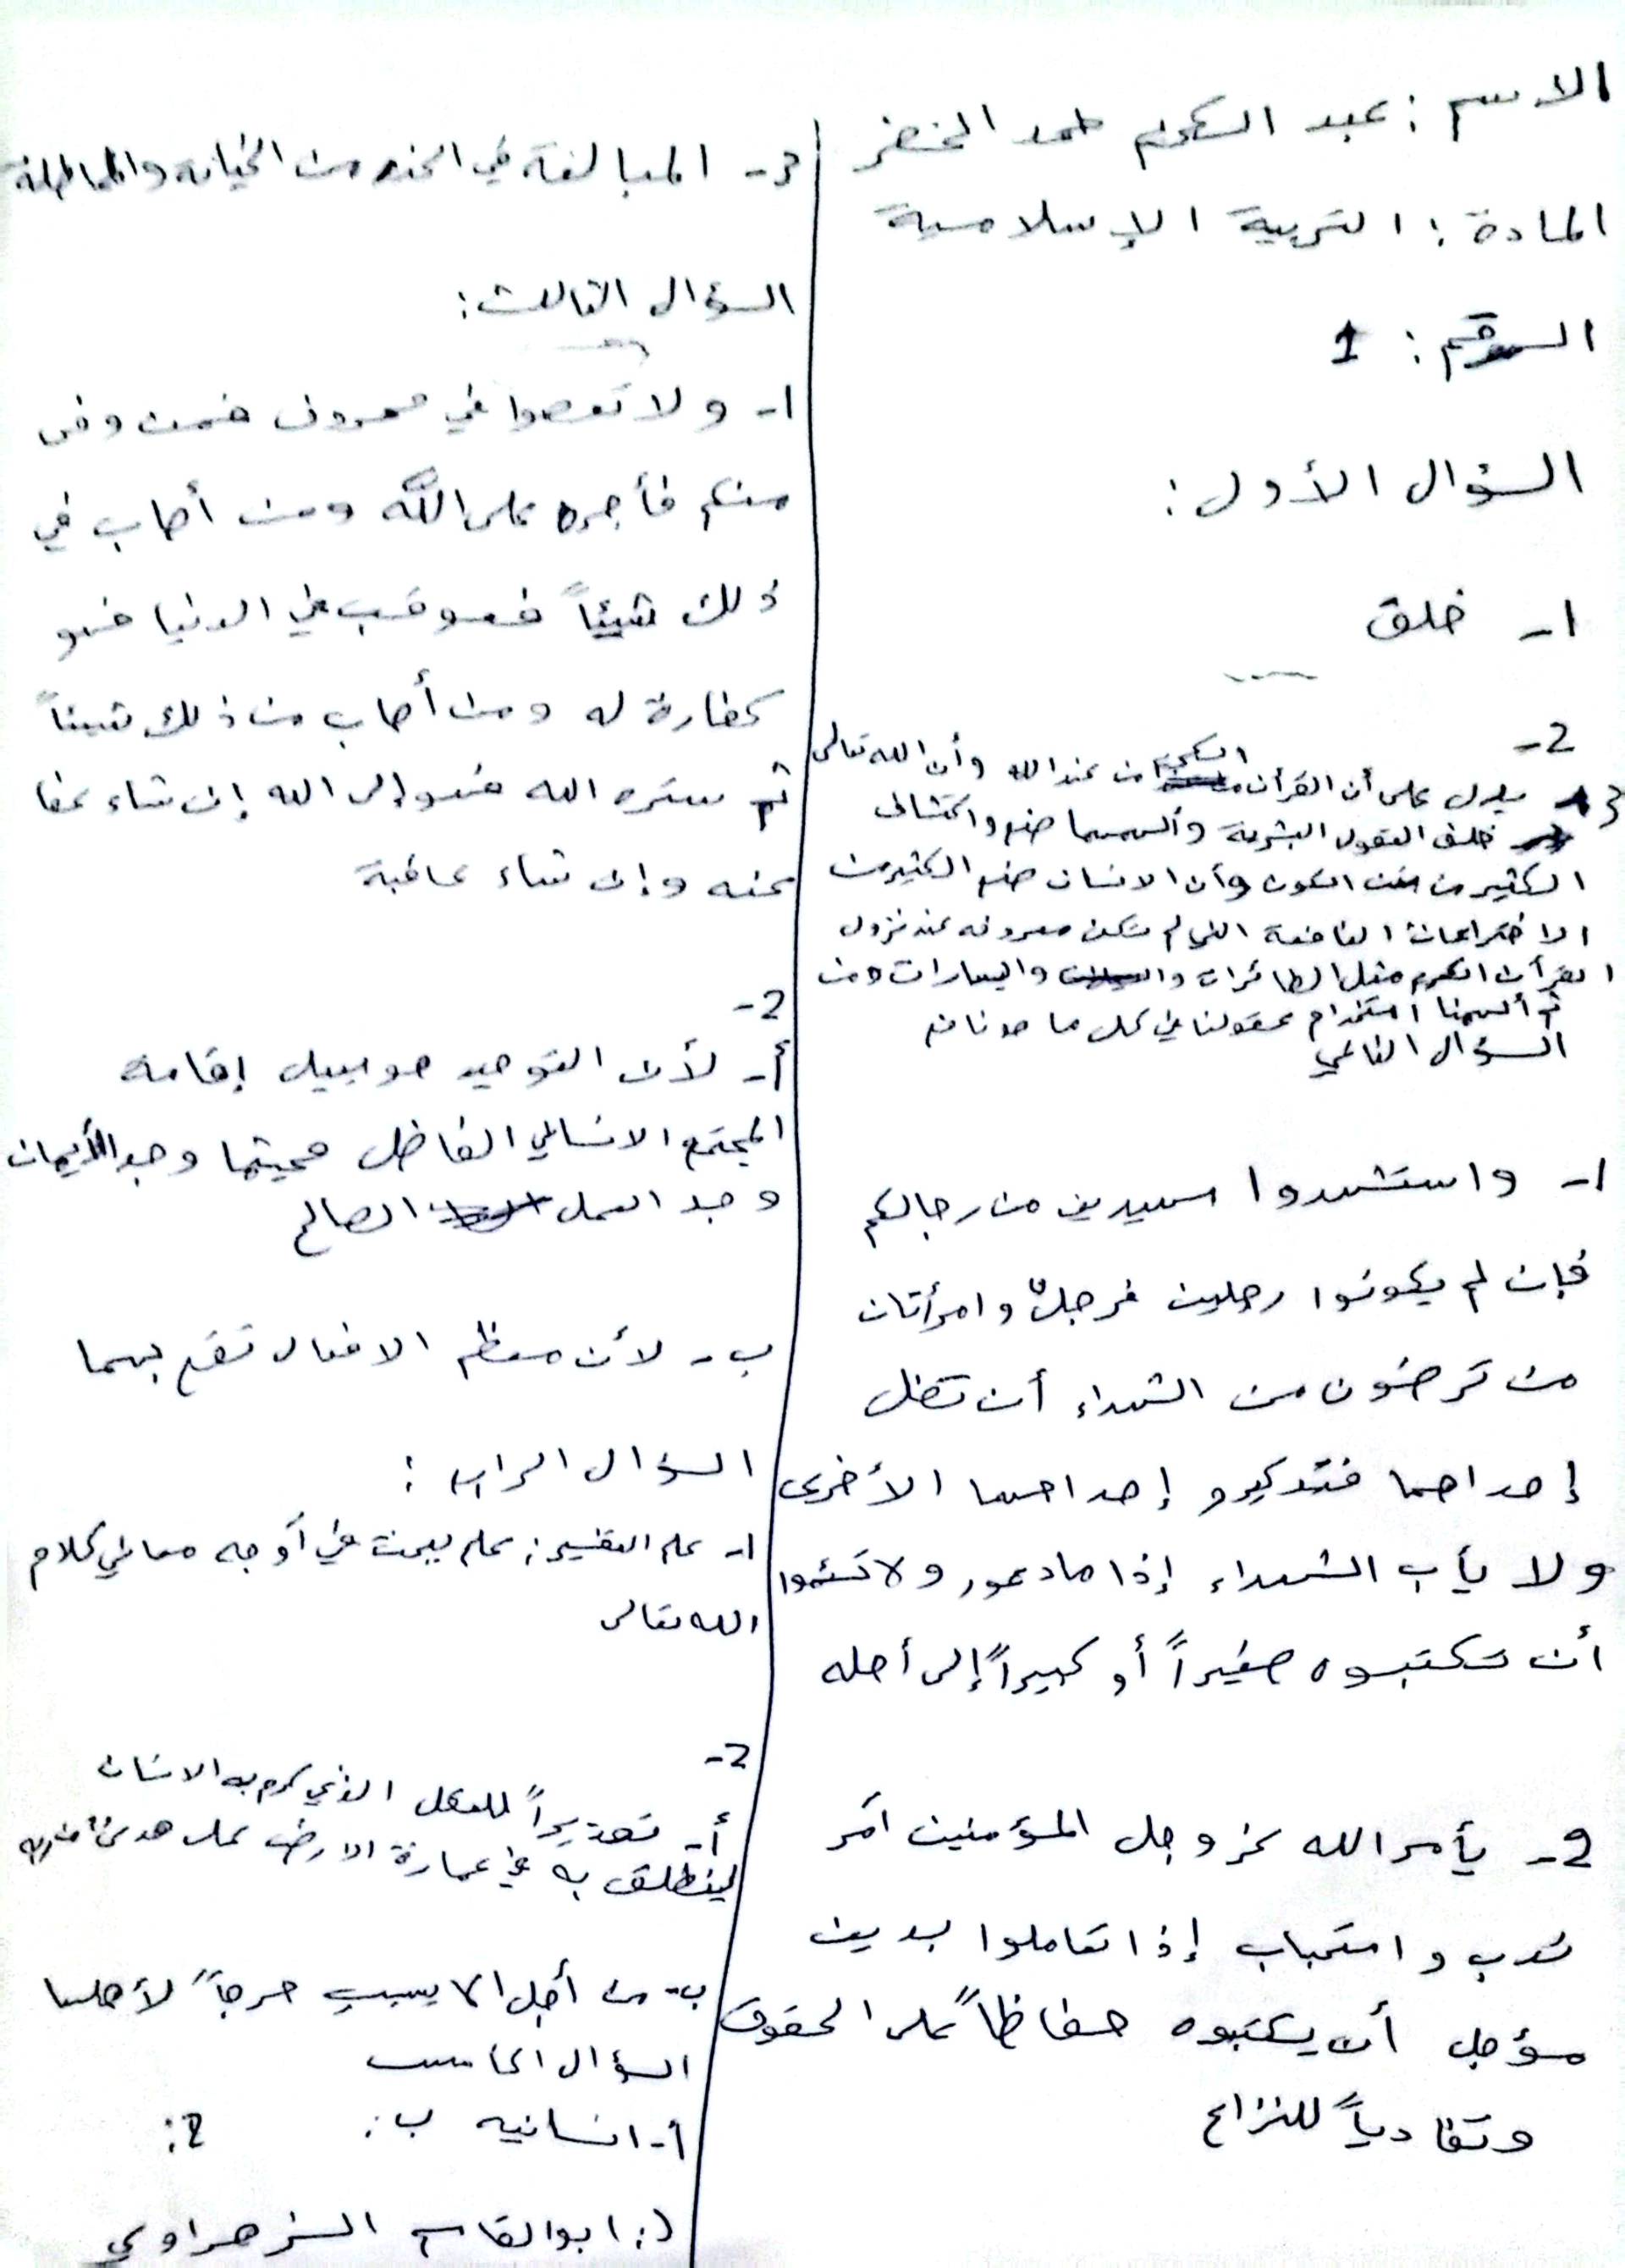 الاسم : عبد الكريم حمد الخضر
المادة : التربية الإسلامية
الرقم : 1
السؤال الأول :
1- خلق
2-
3- يدل على أن القرآن الكريم من عند الله وأن الله تعالى
خلق العقول البشرية وألهمها صنع واكتشاف
الكثير من الكون وأن الانسان صنع الكثير من
الاختراعات النافعة التي لم تكن معروفه عند نزول
القرآن الكريم مثل الطائرات والسيارات ومن
ثم ألهمنا استخدام عقولنا في كل ما هو نافع
السؤال الثاني
1- واستشهدوا سهيدين من رجالكم
فإن لم يكونوا رجلين فرجلٌ وامرأتان
من ترضون من الشهداء أن تضل
إحداهما فتذكر إحداهما الأخرى
ولا يأب الشهداء إذا ما دعو ولا تسئموا
أن تكتبوه صغيراً أو كبيراً إلى أجله
2- يأمر الله عز وجل المؤمنين أمر
ندب واستحباب إذا تعاملوا بدين
مؤجل أن يكتبوه حفاظاً على الحقوق
وتفادياً للنزاع
3- المبالغة في الحذر من الخيانه والمماطلة
السؤال الثالث :
1- ولا تعصوا في معروف فمن وفى
منكم فأجره على الله ومن أصاب في
ذلك شيئاً فعوقب في الدنيا فهو
كفارة له ومن أصاب من ذلك شيئاً
ثم ستره الله فهو إلى الله إن شاء عفا
عنه وإن شاء عاقبة
2-
أ- لأن التوحيد هو سبيل إقامة
المجتمع الانساني الفاضل فحيثما وجد الأيمان
وجد العمل الصالح
ب- لأن معظم الافعال تقع بهما
السؤال الرابع :
1- علم التفسير : علم يبحث في أوجه معاني كلام
الله تعالى
2-
أ- تقديراً للعقل الذي كرم به الانسان
لينطلق به في عمارة الارض على هدى من ربه
ب- من أجل الا يسبب حرجاً لأهلها
السؤال الخامس
أ- انسانيه ب : 2 :
1: ابو القاسم الزهراوي